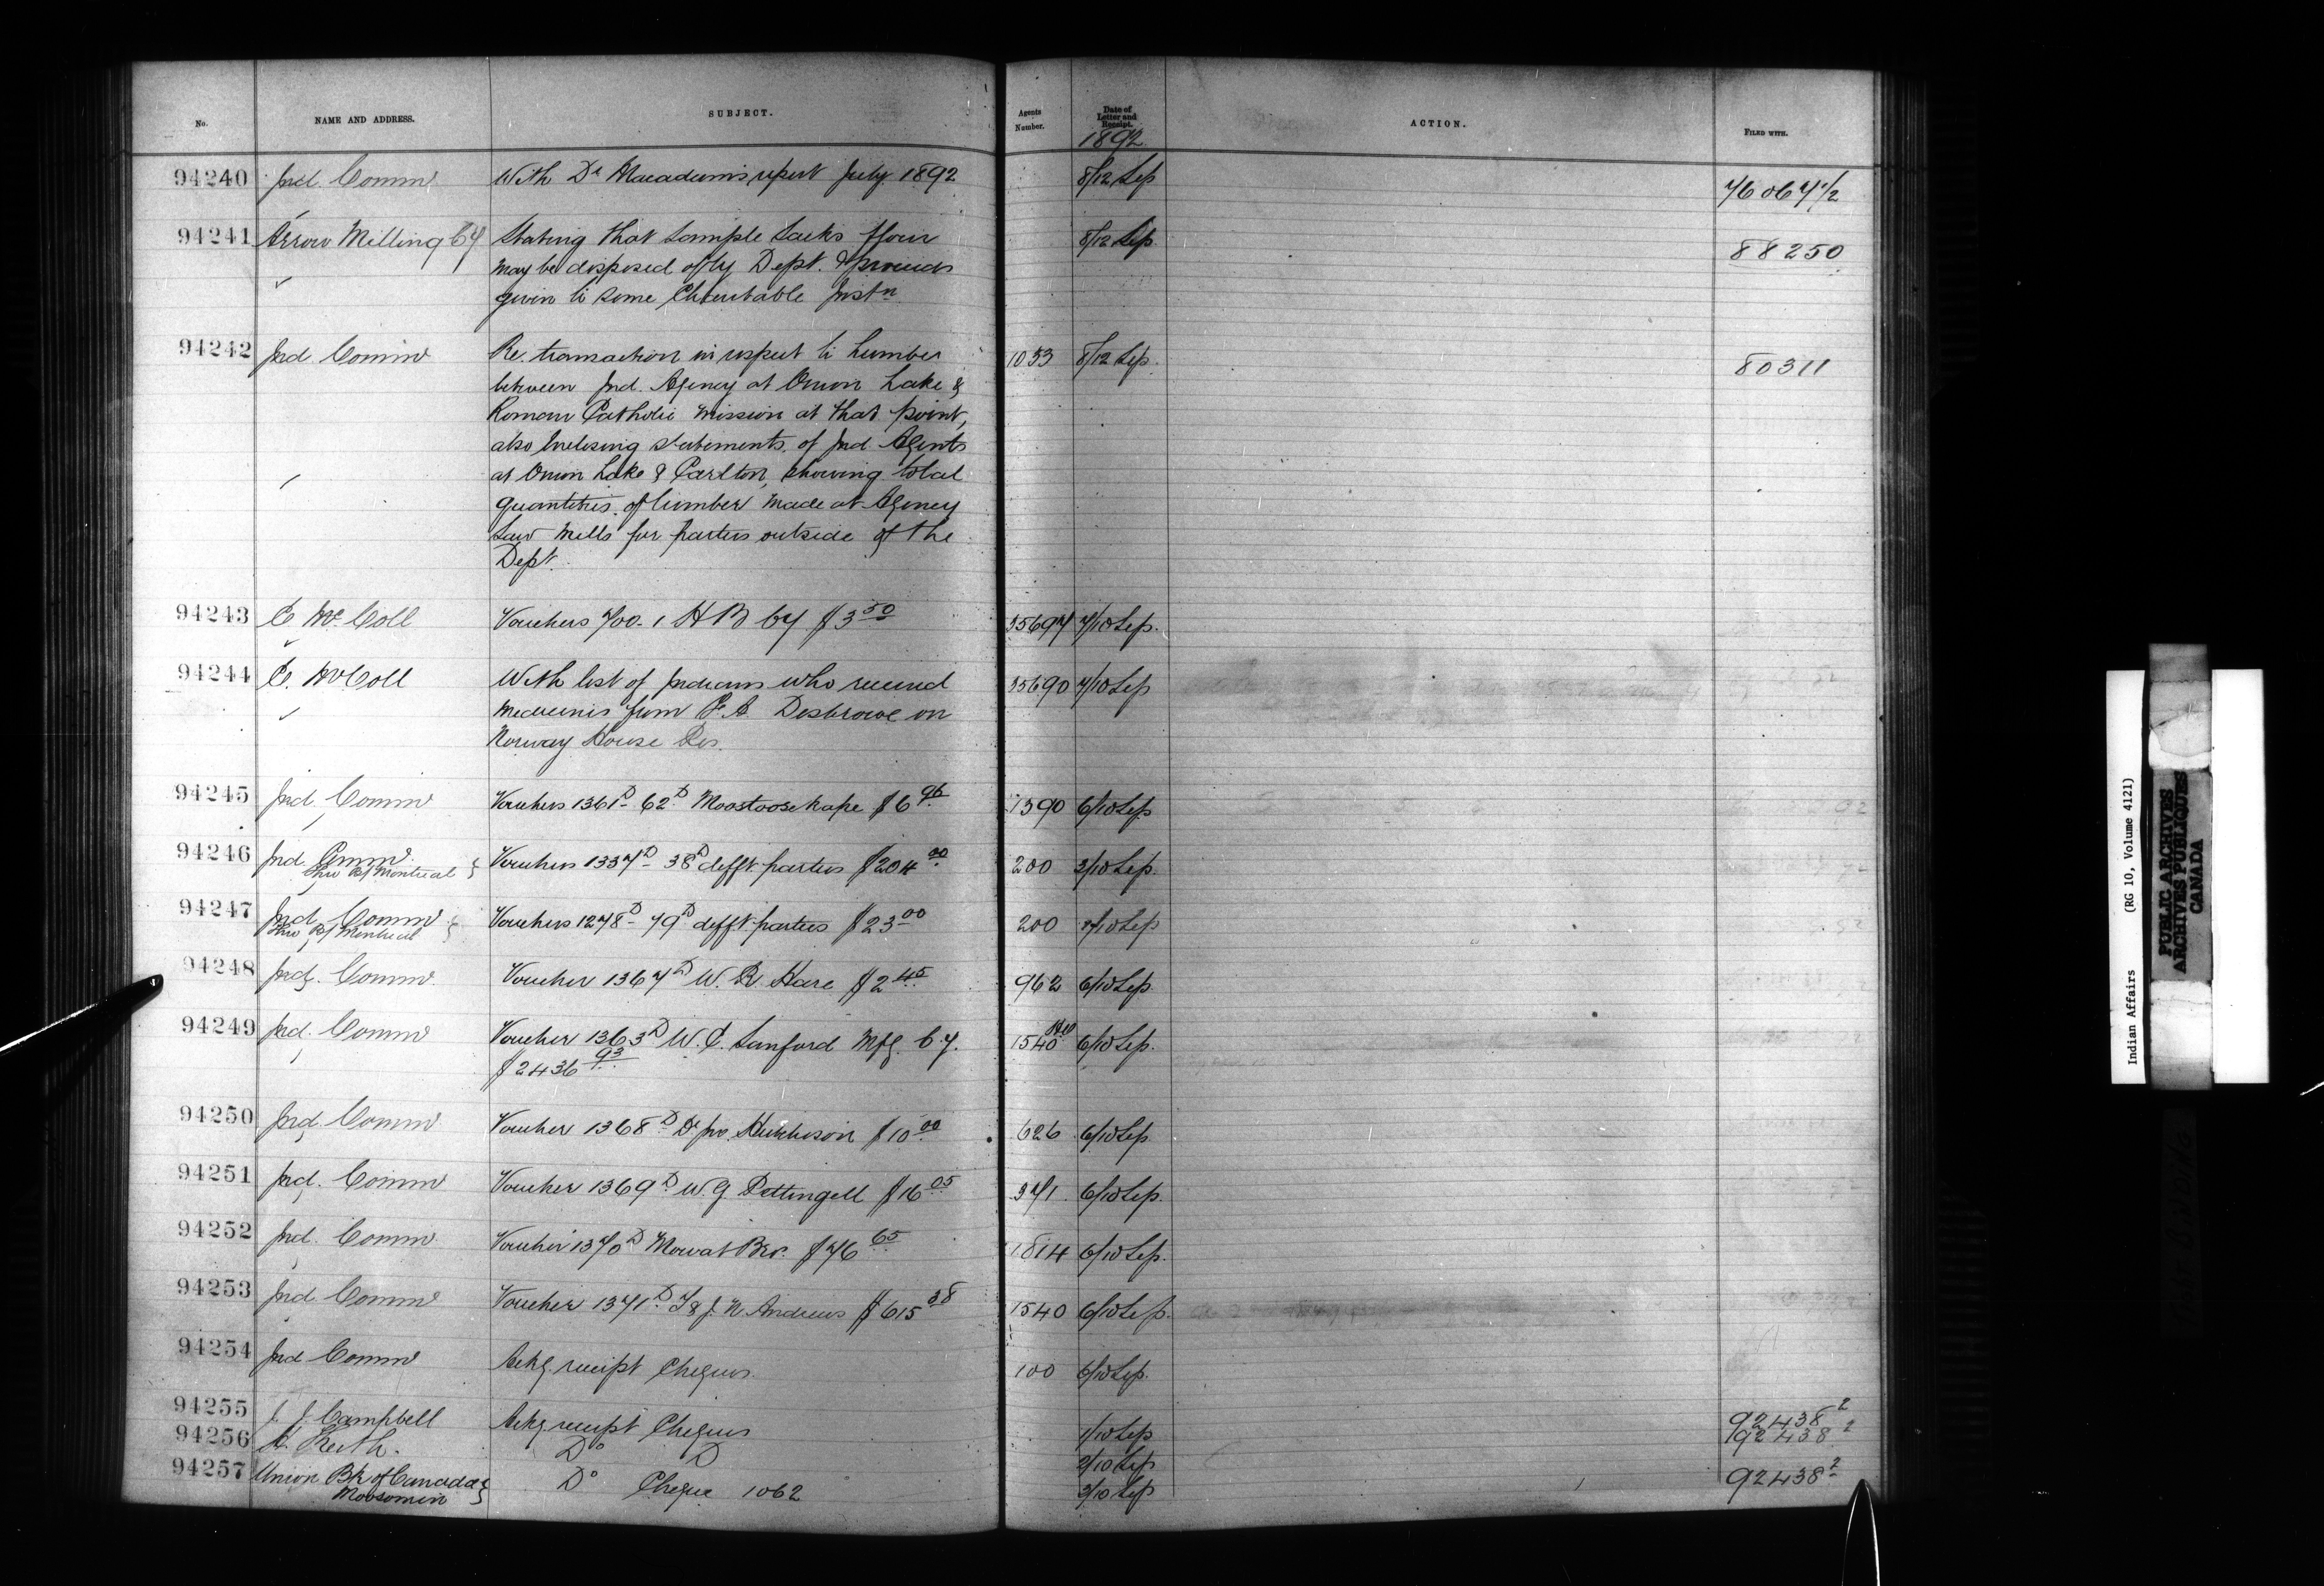 No. NAME AND ADDRESS. SUBJECT. Agents Number. Date of Letter and Receipt. ACTION. FILED WITH.
1892
94240 Ind. Commr With Dr Macadam's report July 1892 8/12 Sep 76067 1/2
94241 Arrow Milling Cy Stating that sample sacks flour 8/12 Sep 88250
may be disposed of by Dept. & proceeds
given to some Charitable Instn
94242 Ind. Commr Re. transaction in respect to lumber 1053 8/12 Sep. 80311
between Ind. Agency at Onion Lake &
Roman Catholic Mission at that point,
also enclosing statements of Ind Agents
at Onion Lake & Carlton, showing total
quantities of lumber made at Agency
Saw Mills for parties outside of the
Dept.
94243 E McColl Vouchers 700-1 H B Cy $3 50 35697 7/10 Sep.
94244 E. McColl With list of Indians who received 35690 7/10 Sep
medicines from F. A Disbrowe on
Norway House Res.
94245 Ind. Commr Vouchers 1361D- 62D Moostoosekape $6 96 1390 6/10 Sep
94246 Ind. Commr Vouchers 1337D- 38D difft. parties $204 00 200 3/10 Sep.
thro Bk Montreal }
94247 Ind. Commr Vouchers 1278D- 79D difft parties $23 00 200 /10 Sep
thro Bk Montreal }
94248 Ind. Commr Voucher 1367D W. R. Hare $2 45 962 6/10 Sep.
94249 Ind. Commr Voucher 1363D W. E. Sanford Mfg. Cy. 1540 6/10 Sep.
$2436 93
94250 Ind. Commr Voucher 1368D Dr Jno. Hutchison $10 00 626 6/10 Sep
94251 Ind. Commr Voucher 1369D W. G Pettingell $16 05 371. 6/10 Sep.
94252 Ind. Commr Voucher 1370D Mowat Bro. $76 65 1814 6/10 Sep.
94253 Ind. Commr Voucher 1371D G & J. N. Andrews $615 38 1540 6/10 Sep.
94254 Ind Commr Ackg. receipt Cheques 100 6/10 Sep.
94255 J. J. Campbell Ackg receipt Cheques 1/10 Sep 92438 2
94256 A. Keith. Do D 2/10 Sep 92438 2
94257 Union Bk of Canada } Do Cheque 1062 3/10 Sep 92438 2
Moosomin
Indian Affairs (RG 10, Volume 4121)
PUBLIC ARCHIVES
ARCHIVES PUBLIQUES
CANADA